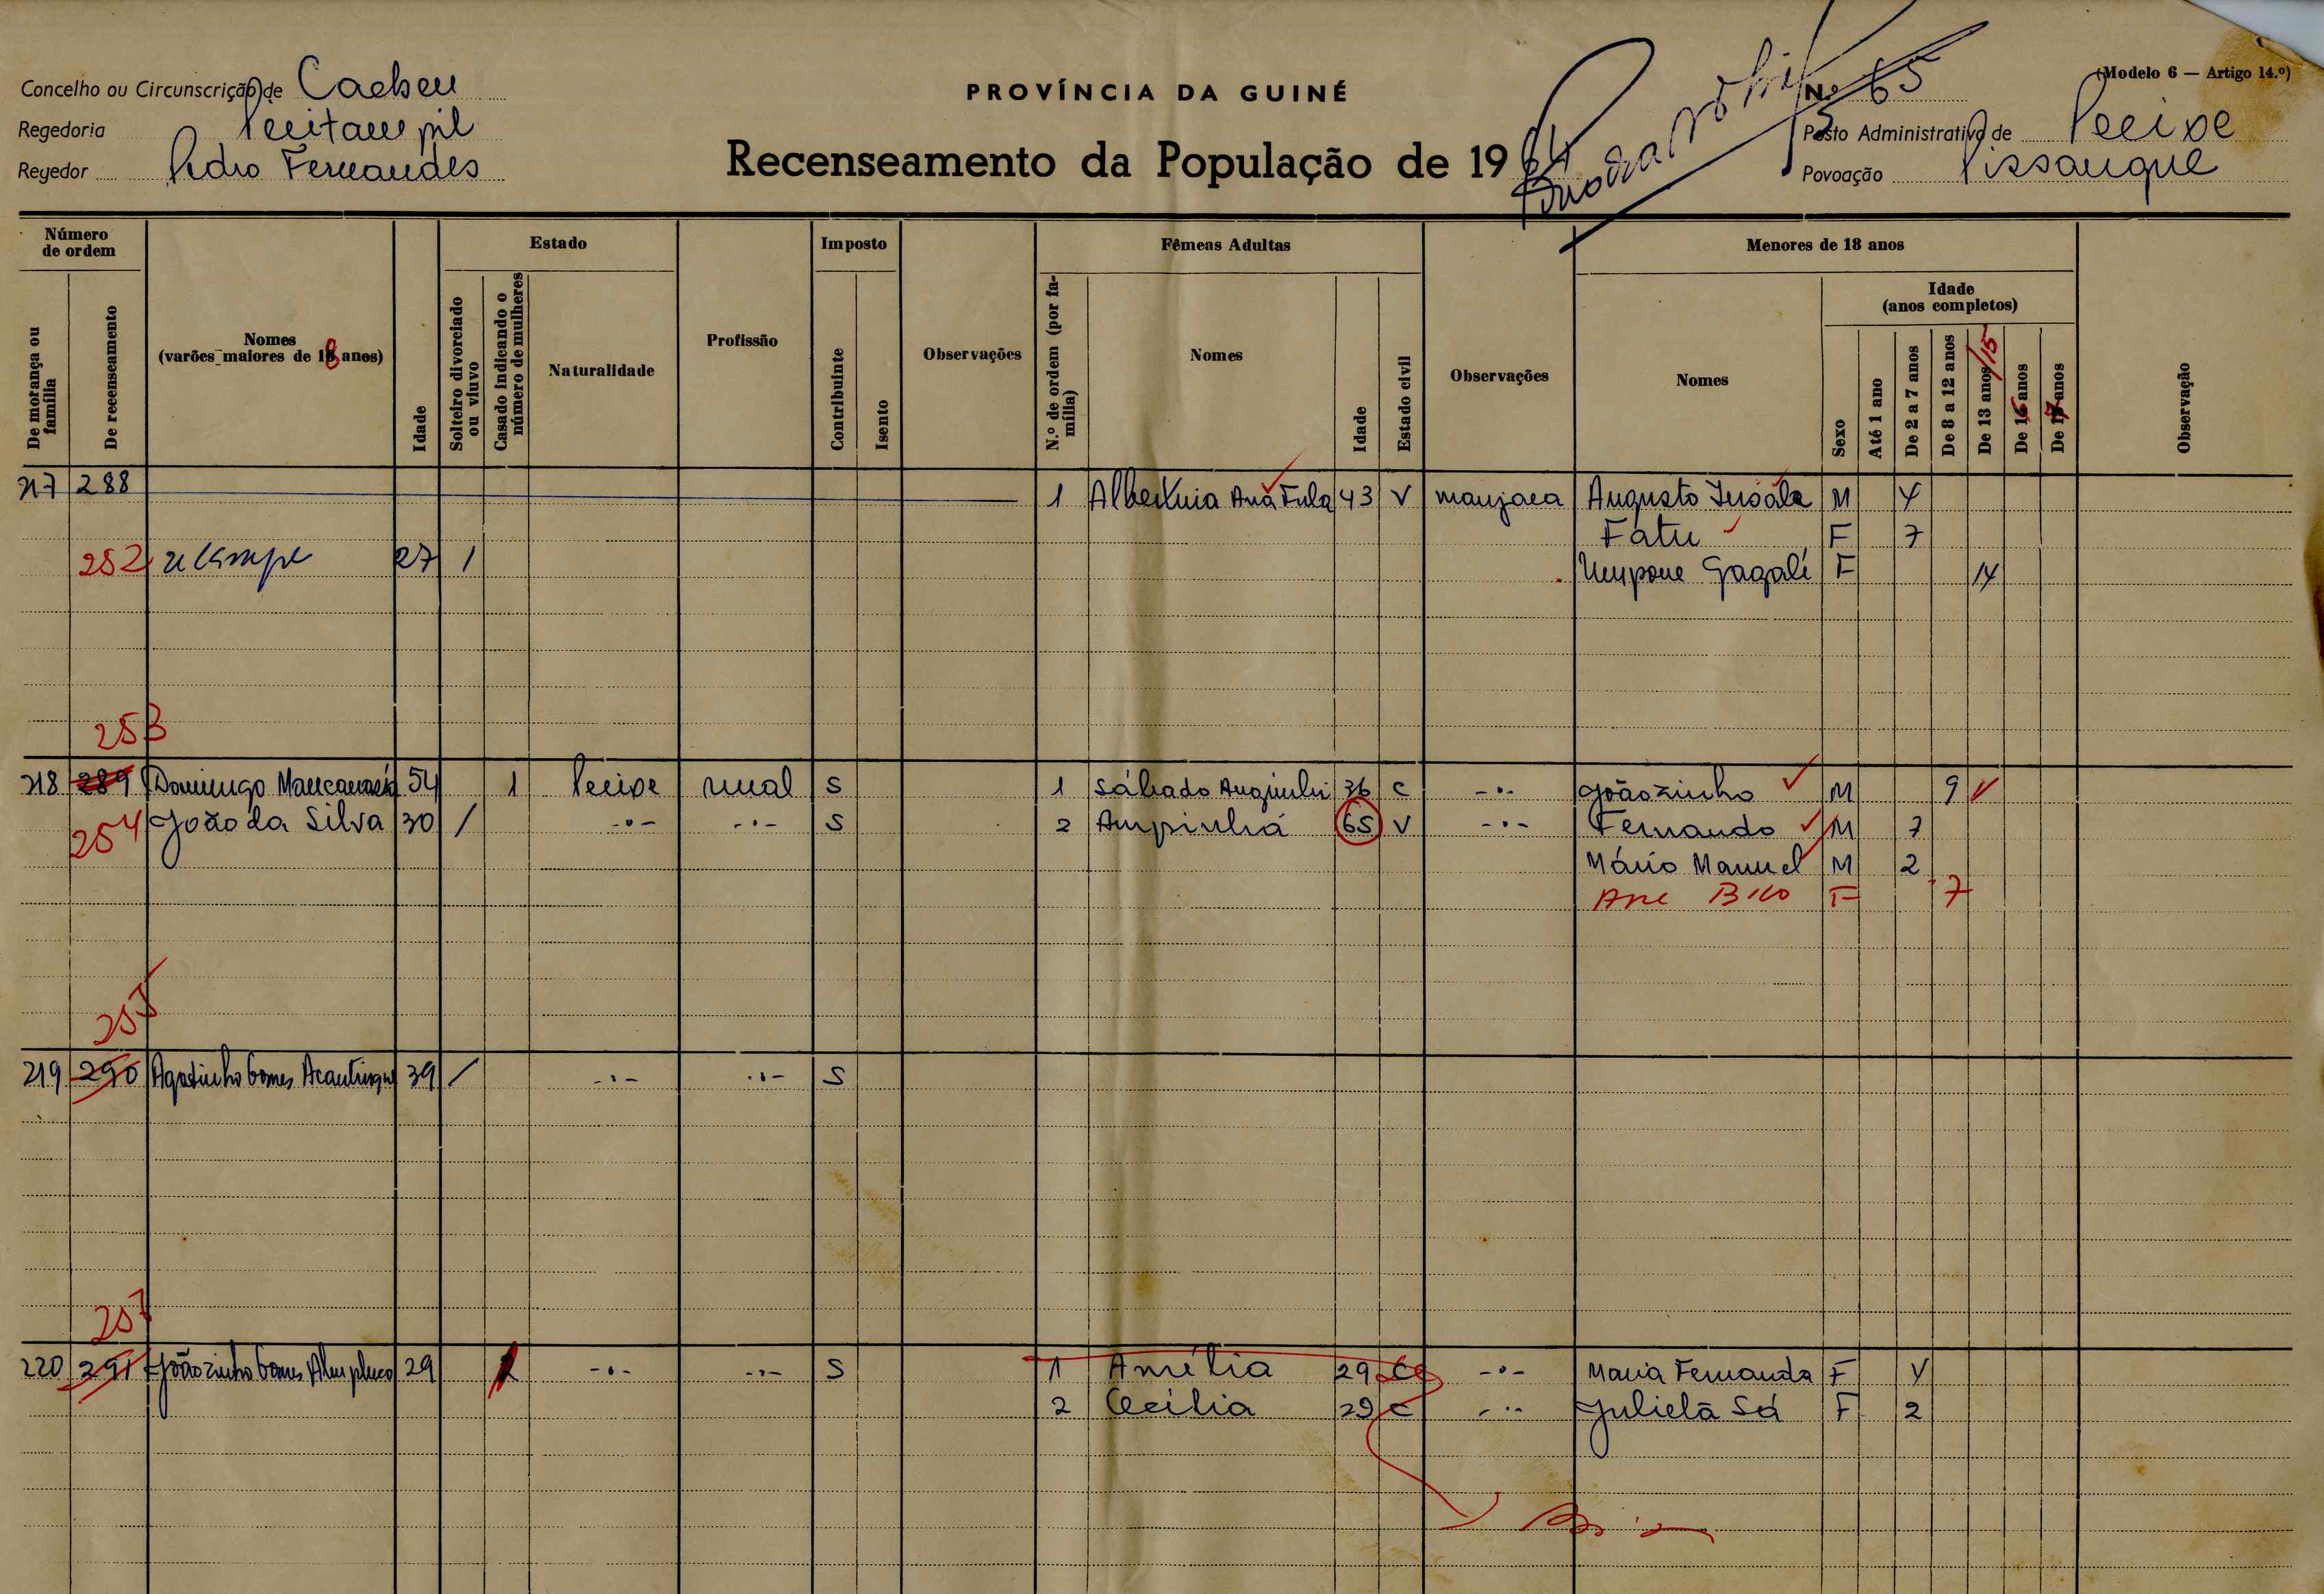 (Modelo 6 — Artigo 14.º)
Concelho ou Circunscrição de Cacheu
PROVÍNCIA DA GUINÉ
N.º 65
Regedoria
Posto Administrativo de Pecixe
Regedor Pedro Fernandes
Recenseamento da População de 19
Povoação Pissangue
Número de ordem
Estado
Imposto
Fêmeas Adultas
Menores de 18 anos
De morança ou família
De recenseamento
Nomes
(varões maiores de 18 anos)
Idade
Solteiro divorciado ou viuvo
Casado indicando o número de mulheres
Naturalidade
Profissão
Contribuinte
Isento
Observações
N.º de ordem (por família)
Nomes
Idade
Estado civil
Observações
Nomes
Idade
(anos completos)
Sexo
Até 1 ano
De 2 a 7 anos
De 8 a 12 anos
De 13 anos /15
De 16 anos
De 17 anos
Observação
217 288 1 Ana Fula 43 V manjaca Augusto M 4
Fatu F 7
252 27 1 Gagalí F 14
253
218 289 Domingo 54 1 Pecixe rural S 1 Sábado 36 C -·- Joãozinho M 9
254 João da Silva 30 / -·- -·- S 2 Ampinhá 65 V -·- Fernando M 7
Mário Manuel M 2
Ana Bico F 7
255
219 290 Agostinho Gomes 39 / -·- -·- S
257
220 291 Joãozinho Gomes 29 -·- -·- S 1 Amélia 29 C -·- Maria Fernanda F 4
2 Cecilia 29 C -·- Julieta Sá F 2